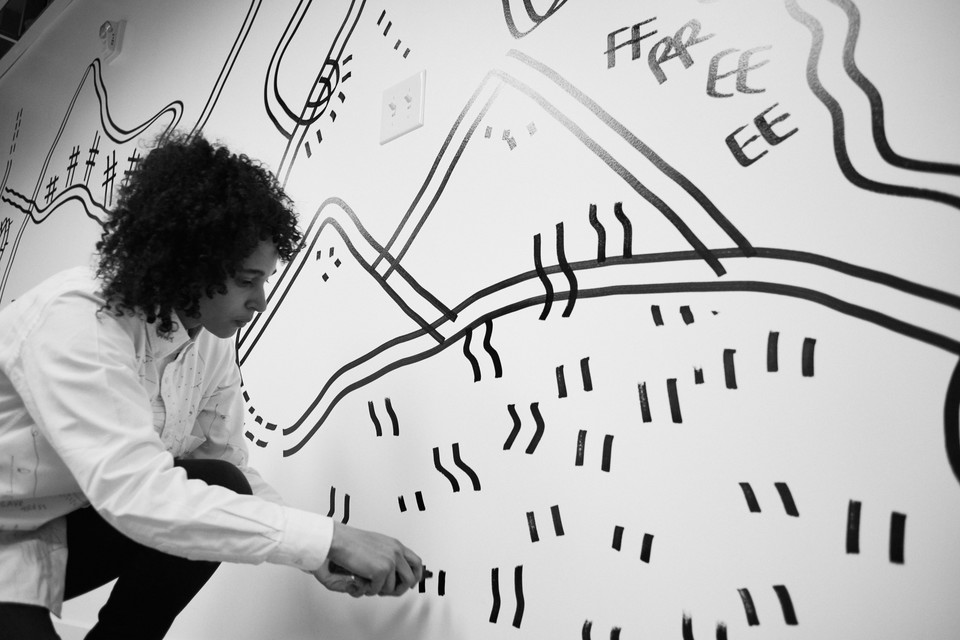 FF RR EE EE